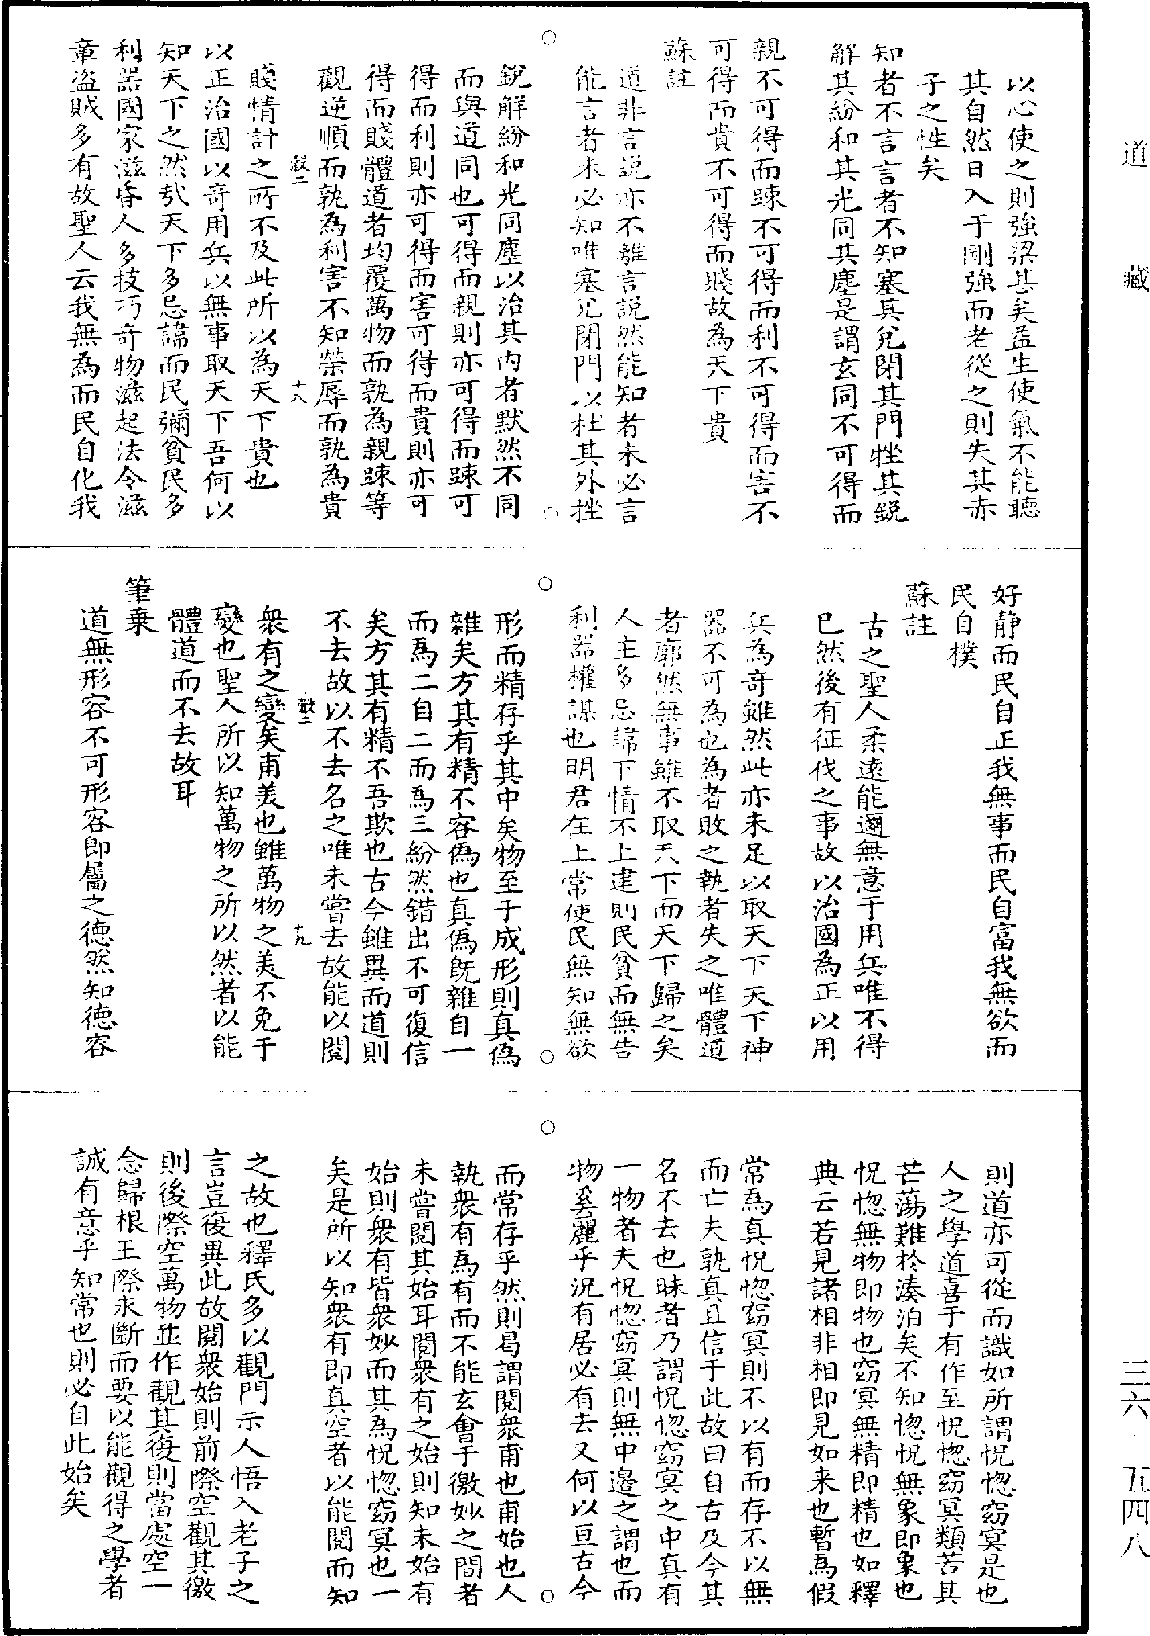 道藏
以心使之則強梁甚矣益生使氣不能聽
其自然日入于剛強而老從之則失其赤
子之性矣
知者不言言者不知塞其兌閉其門挫其銳
解其紛和其光同其塵是謂玄同不可得而
親不可得而踈不可得而利不可得而害不
可得而貴不可得而賤故為天下貴
蘇註
道非言說亦不離言說然能知者未必言
能言者未必知唯塞兌閉門以杜其外挫
銳解紛和光同塵以治其內者默然不同
而與道同也可得而親則亦可得而踈可
得而利則亦可得而害可得而貴則亦可
得而賤體道者均覆萬物而孰為親踈等
觀逆順而孰為利害不知榮辱而孰為貴
賤情計之所不及此所以為天下貴也
十八
以正治國以奇用兵以無事取天下吾何以
知天下之然哉天下多忌諱而民彌貧民多
利器國家滋昏人多技巧奇物滋起法令滋
章盜賊多有故聖人云我無為而民自化我
好靜而民自正我無事而民自富我無欲而
民自樸
蘇註
古之聖人柔遠能邇無意于用兵唯不得
已然後有征伐之事故以治國為正以用
兵為奇雖然此亦未足以取天下天下神
器不可為也為者敗之執者失之唯體道
者廓然無事雖不取天下而天下歸之矣
人主多忌諱下情不上達則民貧而無告
利器權謀也明君在上常使民無知無欲
形而精存乎其中矣物至于成形則真偽
雜矣方其有精不容偽也真偽既雜自一
而為二自二而為三紛然錯出不可復信
矣方其有精不吾欺也古今雖異而道則
不去故以不去名之唯未嘗去故能以閱
眾有之變矣甫美也雖萬物之美不免于
十九
變也聖人所以知萬物之所以然者以能
體道而不去故耳
筆乗
道無形容不可形容即屬之德然知德容
則道亦可從而識如所謂怳惚窈冥是也
人之學道喜于有作至怳惚窈冥類苦其
芒蕩難於湊泊矣不知惚怳無象即象也
怳惚無物即物也窈冥無精即精也如釋
典云若見諸相非相即見如来也暫為假
常為真怳惚窈冥則不以有而存不以無
而亡夫孰真且信于此故曰自古及今其
名不去也昧者乃謂怳惚窈冥之中真有
一物者夫怳惚窈冥則無中邊之謂也而
物奚麗乎況有居必有去又何以亘古今
而常存乎然則曷謂閱眾甫也甫始也人
執眾有為有而不能玄會于徼妙之間者
未嘗閱其始耳閱眾有之始則知未始有
始則眾有皆眾妙而其為怳惚窈冥也一
矣是所以知眾有即真空者以能閱而知
之故也釋氏多以觀門示人悟入老子之
言豈復異此故閱眾始則前際空觀其徼
則後際空萬物並作觀其復則當處空一
念歸根三際永斷而要以能觀得之學者
誠有意乎知常也則必自此始矣
三六·五四八